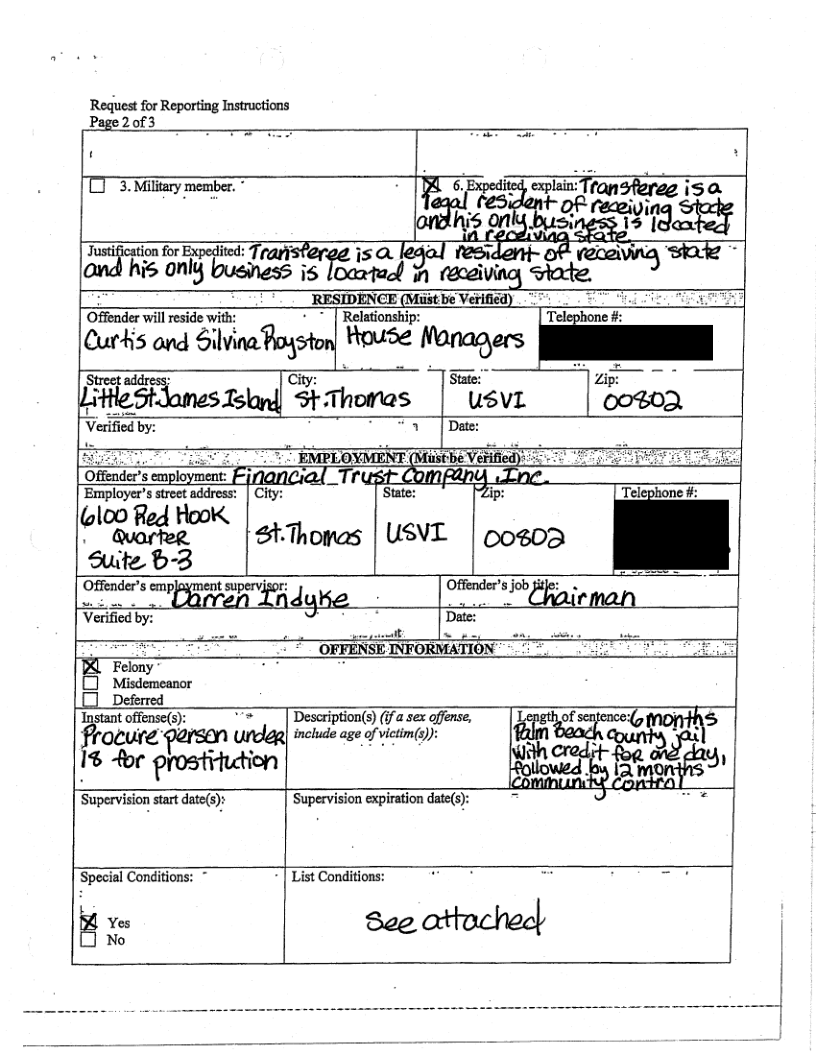 Request for Reporting Instructions
Page 2 of 3
3. Military member.
6. Expedited, explain: Transferee is a
legal resident of receiving state
and his only business is located
in receiving state.
Justification for Expedited: Transferee is a legal resident of receiving state
and his only business is located in receiving state.
RESIDENCE (Must be Verified)
Offender will reside with: Relationship: Telephone #:
Curtis and Silvina Royston House Managers
Street address: City: State: Zip:
Little St. James Island St. Thomas USVI 00802
Verified by: Date:
EMPLOYMENT (Must be Verified)
Offender's employment: Financial Trust Company, Inc.
Employer's street address: City: State: Zip: Telephone #:
6100 Red Hook
Quarter
Suite B-3
St. Thomas USVI 00802
Offender's employment supervisor: Offender's job title:
Darren Indyke Chairman
Verified by: Date:
OFFENSE INFORMATION
Felony
Misdemeanor
Deferred
Instant offense(s):
Procure person under
18 for prostitution
Description(s) (if a sex offense,
include age of victim(s)):
Length of sentence: 6 months
Palm Beach county jail
with credit for one day,
followed by 12 months
community control
Supervision start date(s): Supervision expiration date(s):
Special Conditions: List Conditions:
Yes
No
See attached